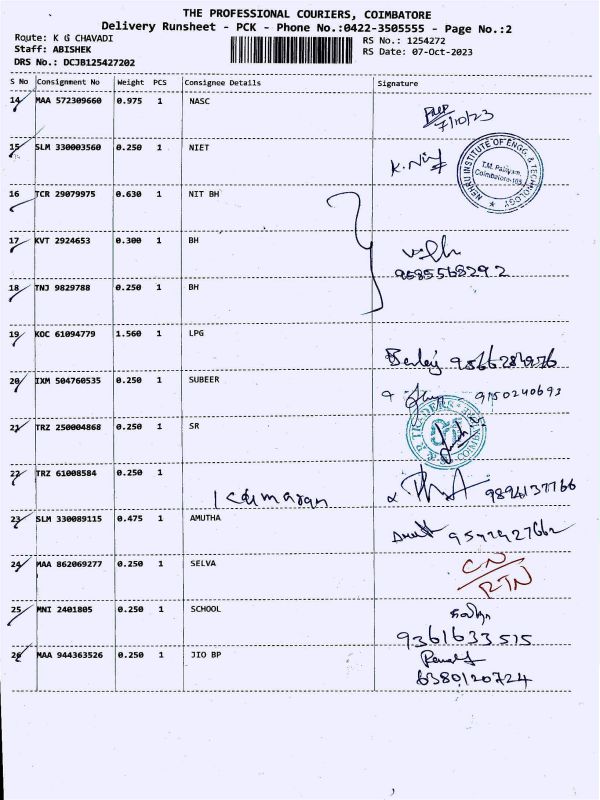 THE PROFESSIONAL COURIERS, COIMBATORE
Delivery Runsheet - PCK - Phone No.:0422-3505555 - Page No.:2
Route: K G CHAVADI
RS No.: 1254272
Staff: ABISHEK
RS Date: 07-Oct-2023
DRS No.: DCJB125427202
S No Consignment No Weight PCS Consignee Details Signature
14 MAA 572309660 0.975 1 NASC
7/10/23
15 SLM 330003560 0.250 1 NIET
NEHRU INSTITUTE OF ENGG & TECHNOLOGY
T.M. Palayam,
Coimbatore-105
16 TCR 29079975 0.630 1 NIT BH
17 KVT 2924653 0.300 1 BH
9585568292
18 TNJ 9829788 0.250 1 BH
19 KOC 61094779 1.560 1 LPG
20 IXM 504760535 0.250 1 SUBEER
9150240693
21 TRZ 250004868 0.250 1 SR
TRADERS
22 TRZ 61008584 0.250 1
Kumaran
9894137766
23 SLM 330089115 0.475 1 AMUTHA
24 MAA 862069277 0.250 1 SELVA
CN/RTN
25 MNI 2401805 0.250 1 SCHOOL
9361633515
26 MAA 944363526 0.250 1 JIO BP
6380120724